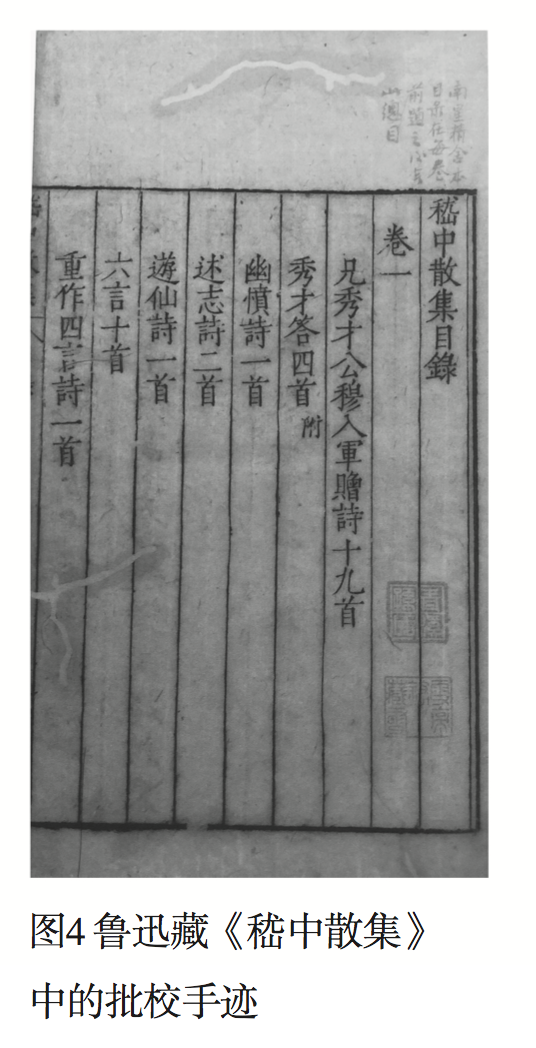 目录在每卷
總目
嵇中散集目錄
卷一
兄秀才公穆入軍贈詩十九首
秀才答四首 附
幽憤詩一首
述志詩二首
遊仙詩一首
六言十首
重作四言詩一首
图4 鲁迅藏《嵇中散集》
中的批校手迹